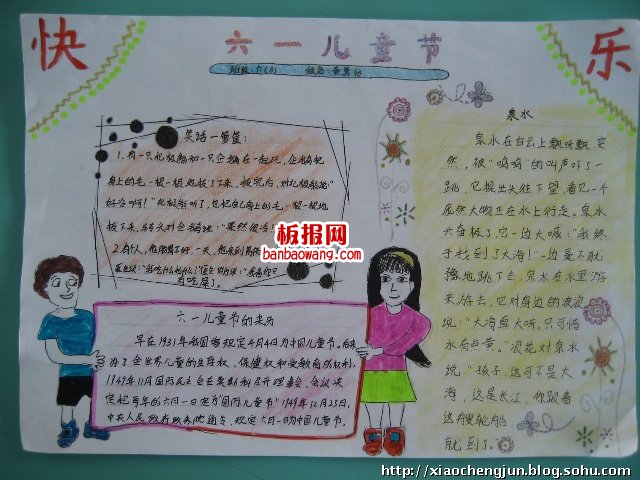 快 乐
六一儿童节
班级:六(3) 姓名:
笑话一箩筐:
1.有一只北极熊和一只企鹅在一起玩,企鹅把
身上的毛一根一根地拔了下来,拔完后,对北极熊说:“
好冷啊!”北极熊听了,也把自己身上的毛一根一根地
拔下来,转头对企鹅说:“果然很冷!
2.有个人,他
有吃屎了。
六一儿童节的来历
早在1931年,我国曾规定4月4日为中国儿童节。
办了全世界儿童的生存权、保健权和受教育的权利,
1949年11月国际民主妇女联合会在莫斯科召开理事会,会议决
定把每年的六月一日定为“国际儿童节”1949年12月23日,
中央人民政府政务院通令,规定六月一日为中国儿童节。
泉水
泉水在白云上飘呀飘,突
然,被“呜呜”的叫声吓了一
跳,它探出头往下望,看见一个
庞然大物正在水上行走。泉水
六角极了,它一边大喊:“我终
于找到了大海!”一边毫不犹
豫地跳下去,泉水在水里游
来游去,它对身边的浪花
说:“大海真大呀,只可惜
水有点黄。”浪花对泉水
说:“孩子,这可不是大
海,这是长江,你跟着
这艘轮船
就到了。”
板报网
banbaowang.com
http://xiaochengjun.blog.sohu.com